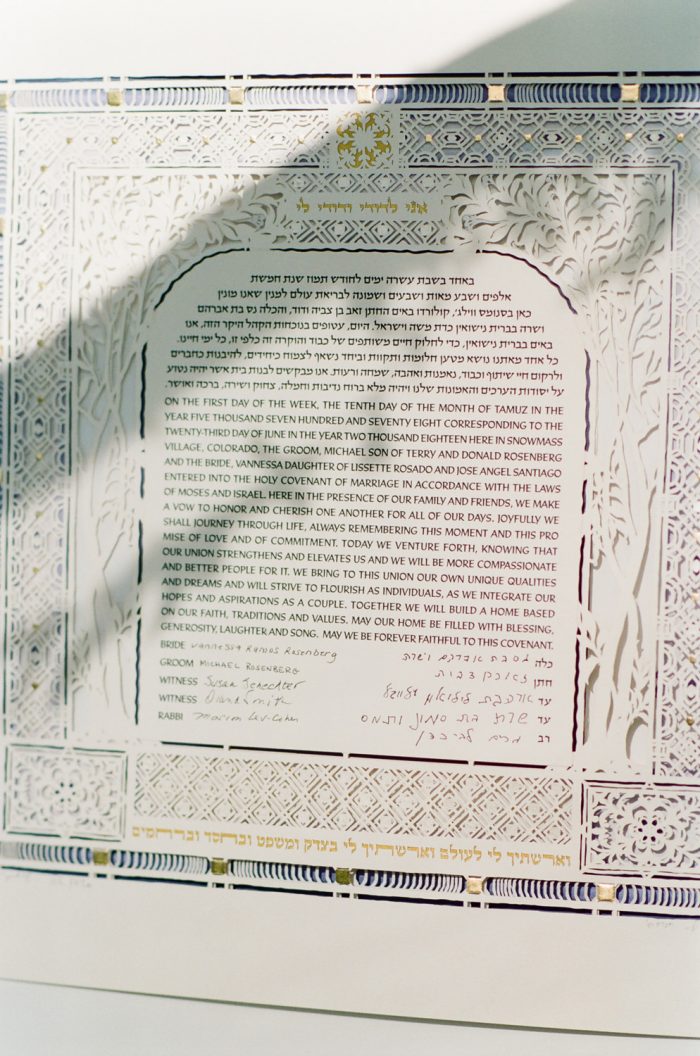 אני לדודי ודודי לי
באחד בשבת עשרה ימים לחודש תמוז שנת חמשת
אלפים ושבע מאות ושבעים ושמונה לבריאת עולם למנין שאנו מונין
כאן בסנומס ווילג', קולורדו באים החתן זאב בן צביה ודוד, והכלה נס בת אברהם
ושרה בברית נישואין כדת משה וישראל. היום, עטופים בנוכחות הקהל היקר הזה, אנו
באים בברית נישואין, כדי לחלוק חיים משותפים של כבוד והוקרה זה כלפי זו, כל ימי חיינו.
כל אחד מאתנו נושא מטען חלומות ותקוות וביחד נשאף לצמוח כיחידים, להיבנות כחברים
ולרקום חיי שיתוף וכבוד, נאמנות ואהבה, שמחה ורעות. אנו מבקשים לבנות בית אשר יהיה נטוע
על יסודות הערכים והאמונות שלנו ויהיה מלא ברוח נדיבות וחמלה, צחוק ושירה, ברכה ואושר.
ON THE FIRST DAY OF THE WEEK, THE TENTH DAY OF THE MONTH OF TAMUZ IN THE
YEAR FIVE THOUSAND SEVEN HUNDRED AND SEVENTY EIGHT CORRESPONDING TO THE
TWENTY-THIRD DAY OF JUNE IN THE YEAR TWO THOUSAND EIGHTEEN HERE IN SNOWMASS
VILLAGE, COLORADO, THE GROOM, MICHAEL SON OF TERRY AND DONALD ROSENBERG
AND THE BRIDE, VANNESSA DAUGHTER OF LISSETTE ROSADO AND JOSE ANGEL SANTIAGO
ENTERED INTO THE HOLY COVENANT OF MARRIAGE IN ACCORDANCE WITH THE LAWS
OF MOSES AND ISRAEL. HERE IN THE PRESENCE OF OUR FAMILY AND FRIENDS, WE MAKE
A VOW TO HONOR AND CHERISH ONE ANOTHER FOR ALL OF OUR DAYS. JOYFULLY WE
SHALL JOURNEY THROUGH LIFE, ALWAYS REMEMBERING THIS MOMENT AND THIS PRO
MISE OF LOVE AND OF COMMITMENT. TODAY WE VENTURE FORTH, KNOWING THAT
OUR UNION STRENGTHENS AND ELEVATES US AND WE WILL BE MORE COMPASSIONATE
AND BETTER PEOPLE FOR IT. WE BRING TO THIS UNION OUR OWN UNIQUE QUALITIES
AND DREAMS AND WILL STRIVE TO FLOURISH AS INDIVIDUALS, AS WE INTEGRATE OUR
HOPES AND ASPIRATIONS AS A COUPLE. TOGETHER WE WILL BUILD A HOME BASED
ON OUR FAITH, TRADITIONS AND VALUES. MAY OUR HOME BE FILLED WITH BLESSING,
GENEROSITY, LAUGHTER AND SONG. MAY WE BE FOREVER FAITHFUL TO THIS COVENANT.
BRIDE Vannessa Ramos Rosenberg כלה נס בת אברהם ושרה
GROOM MICHAEL ROSENBERG חתן
WITNESS Susan Schechter עד
WITNESS Diana Smith עד
RABBI רב מרים
וארשתיך לי לעולם וארשתיך לי בצדק ומשפט ובחסד וברחמים